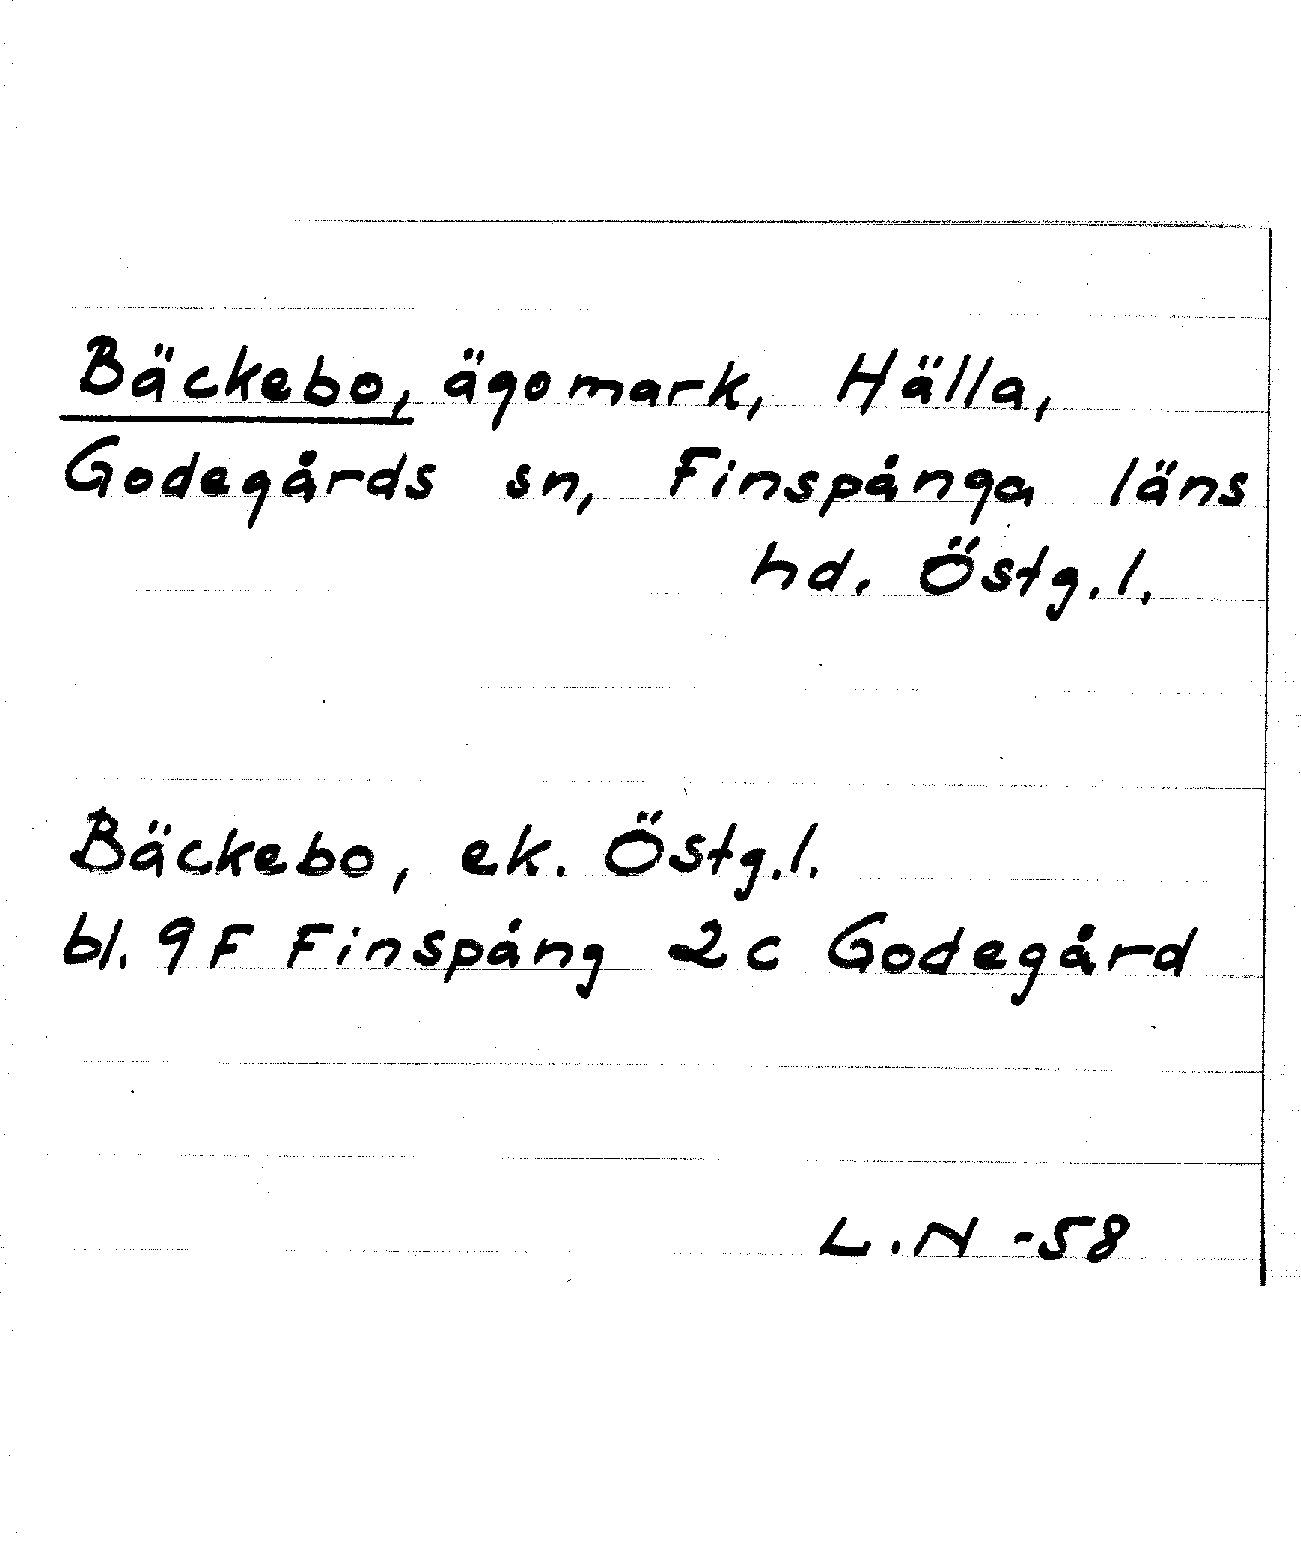 Bäckebo, ägomark, Hälla,
Godegårds sn, Finspånga läns
hd. Östg.l.
Bäckebo, ek. Östg.l.
bl. 9F Finspång 2c Godegård
L.N -58